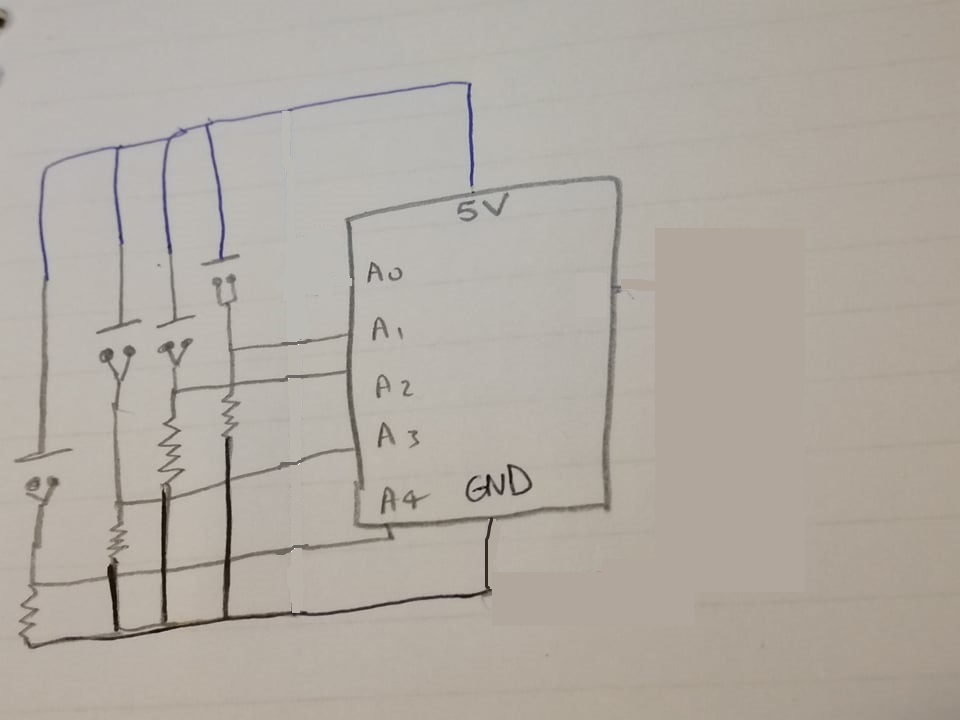 5V
A0
A1
A2
A3
A4 GND